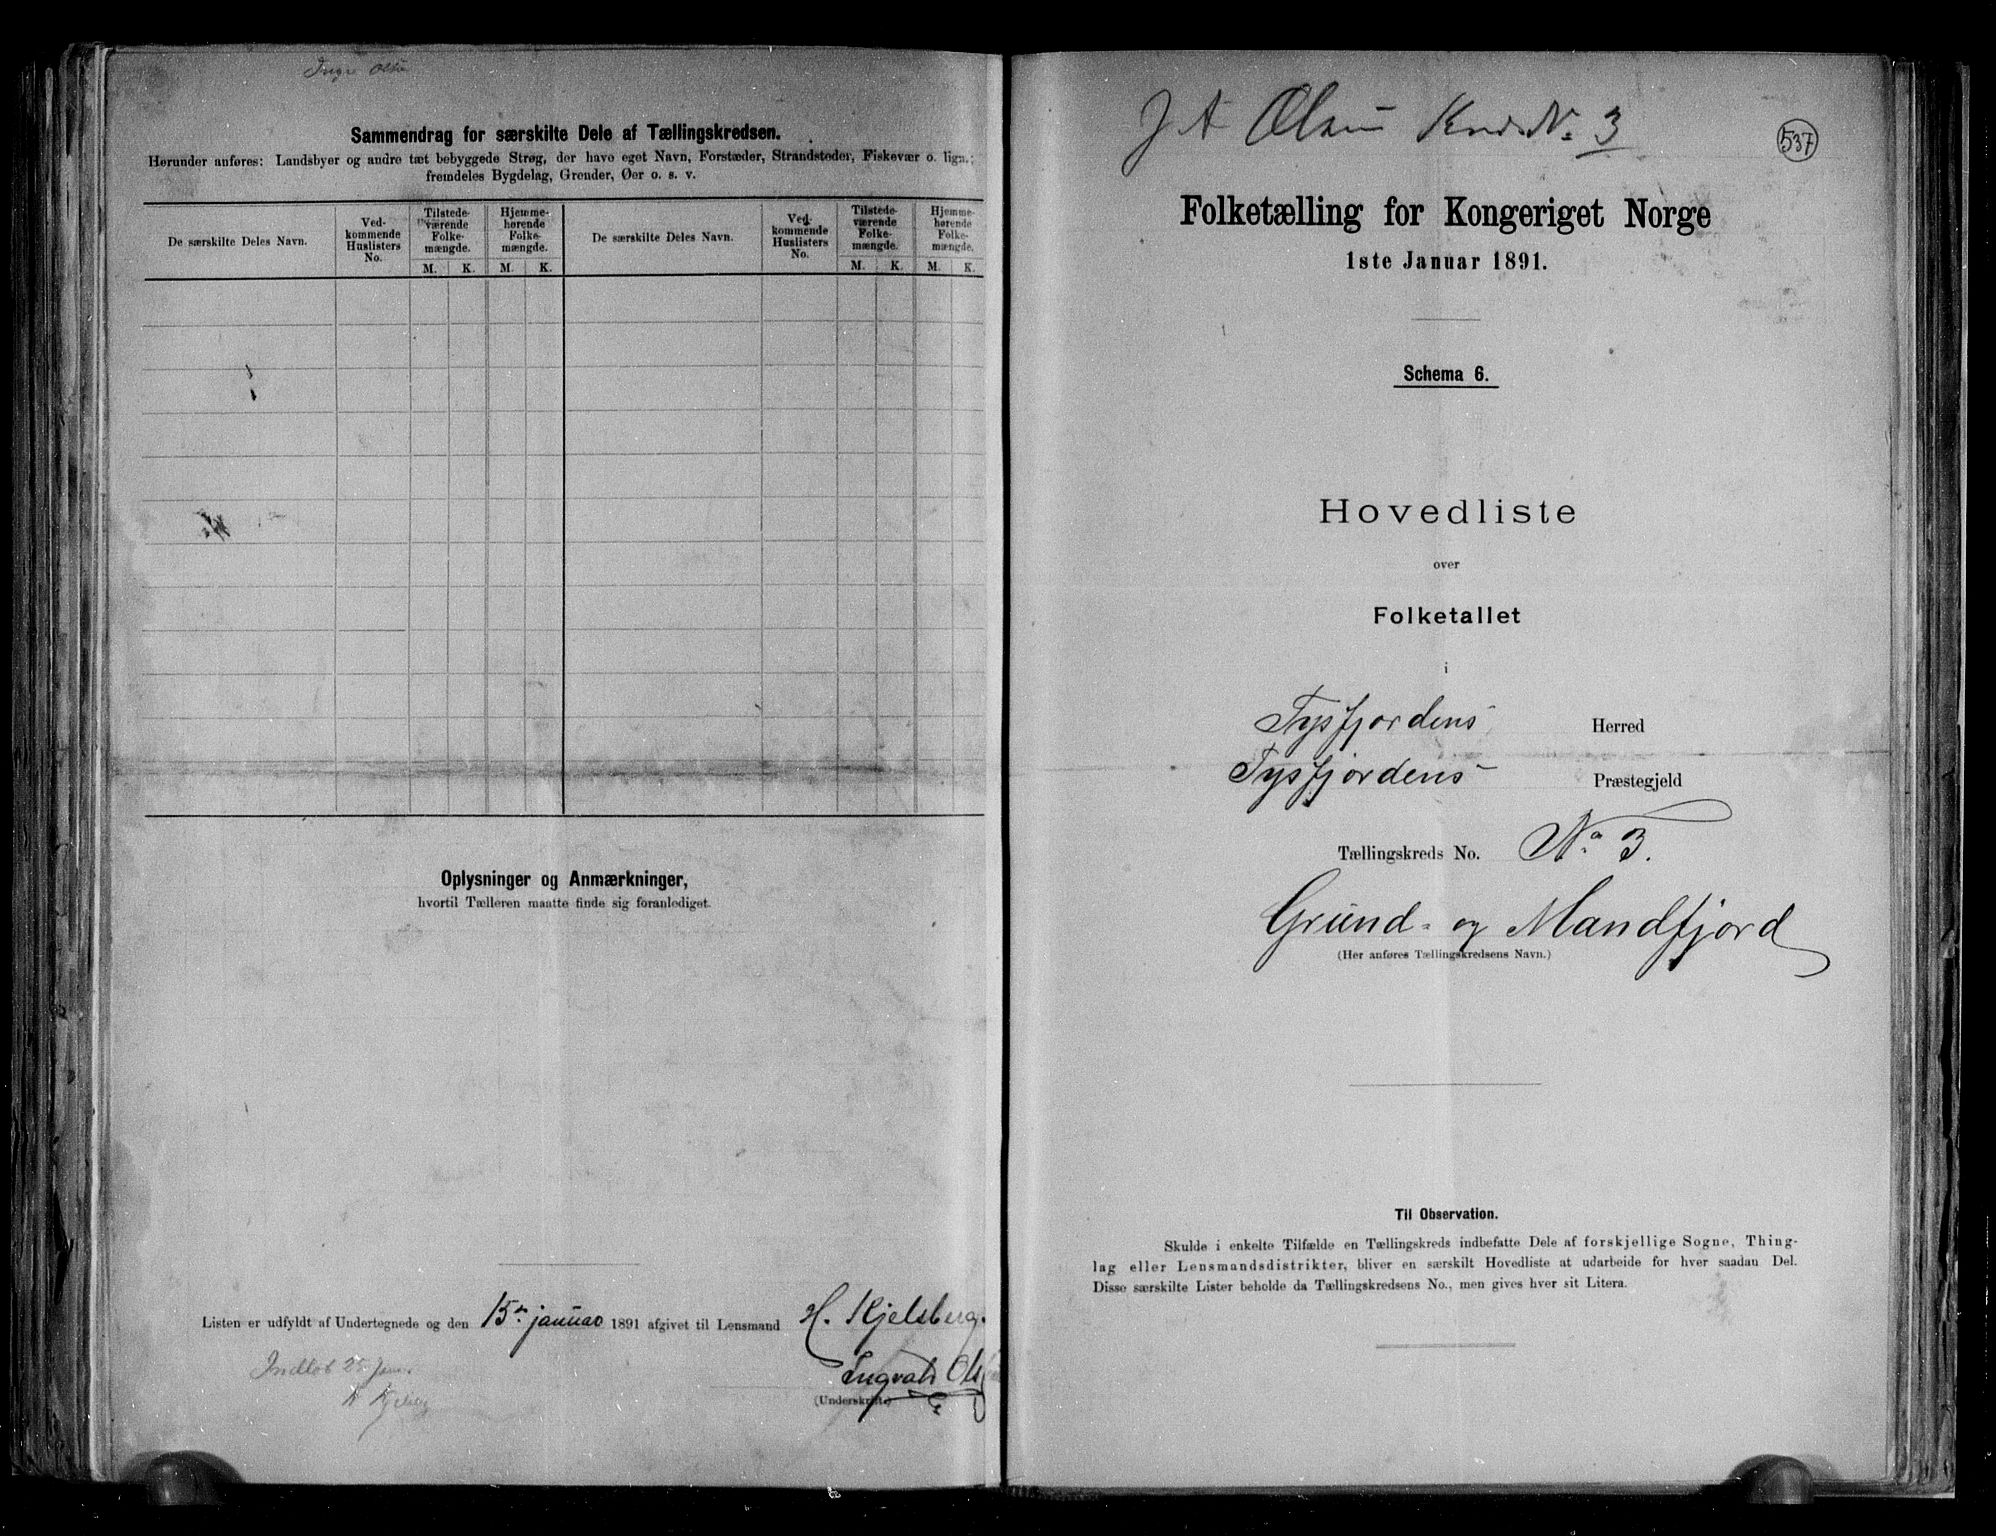 Sammendrag for særskilte Dele af Tællingskredsen.
Herunder anføres: Landsbyer og andre tæt bebyggede Strøg, der have eget Navn, Forstæder, Strandsteder, Fiskevær o. lign.;
fremdeles Bygdelag, Grender, Øer o. s. v.
De særskilte Deles Navn.
Ved-
kommende
Huslisters
No.
Tilstede-
værende
Folke-
mængde.
M. K.
Hjemme-
hørende
Folke-
mængde.
M. K.
De særskilte Deles Navn.
Ved-
kommende
Huslisters
No.
Tilstede-
værende
Folke-
mængde.
M. K.
Hjemme-
hørende
Folke-
mængde.
M. K.
Oplysninger og Anmærkninger,
hvortil Tælleren maatte finde sig foranlediget.
Listen er udfyldt af Undertegnede og den 15de januar 1891 afgivet til Lensmand H. Kjelsberg.
Ingvald
(Underskrift)
25 Jan.
J A Olsen No. 3
537
Folketælling for Kongeriget Norge
1ste Januar 1891.
Schema 6.
Hovedliste
over
Folketallet
i
Tysfjordens Herred
Tysfjordens Præstegjeld
Tællingskreds No. No. 3.
Grund- og Mandfjord
(Her anføres Tællingskredsens Navn.)
Til Observation.
Skulde i enkelte Tilfælde en Tællingskreds indbefatte Dele af forskjellige Sogne, Thing-
lag eller Lensmandsdistrikter, bliver en særskilt Hovedliste at udarbeide for hver saadan Del.
Disse særskilte Lister beholde da Tællingskredsens No., men gives hver sit Litera.